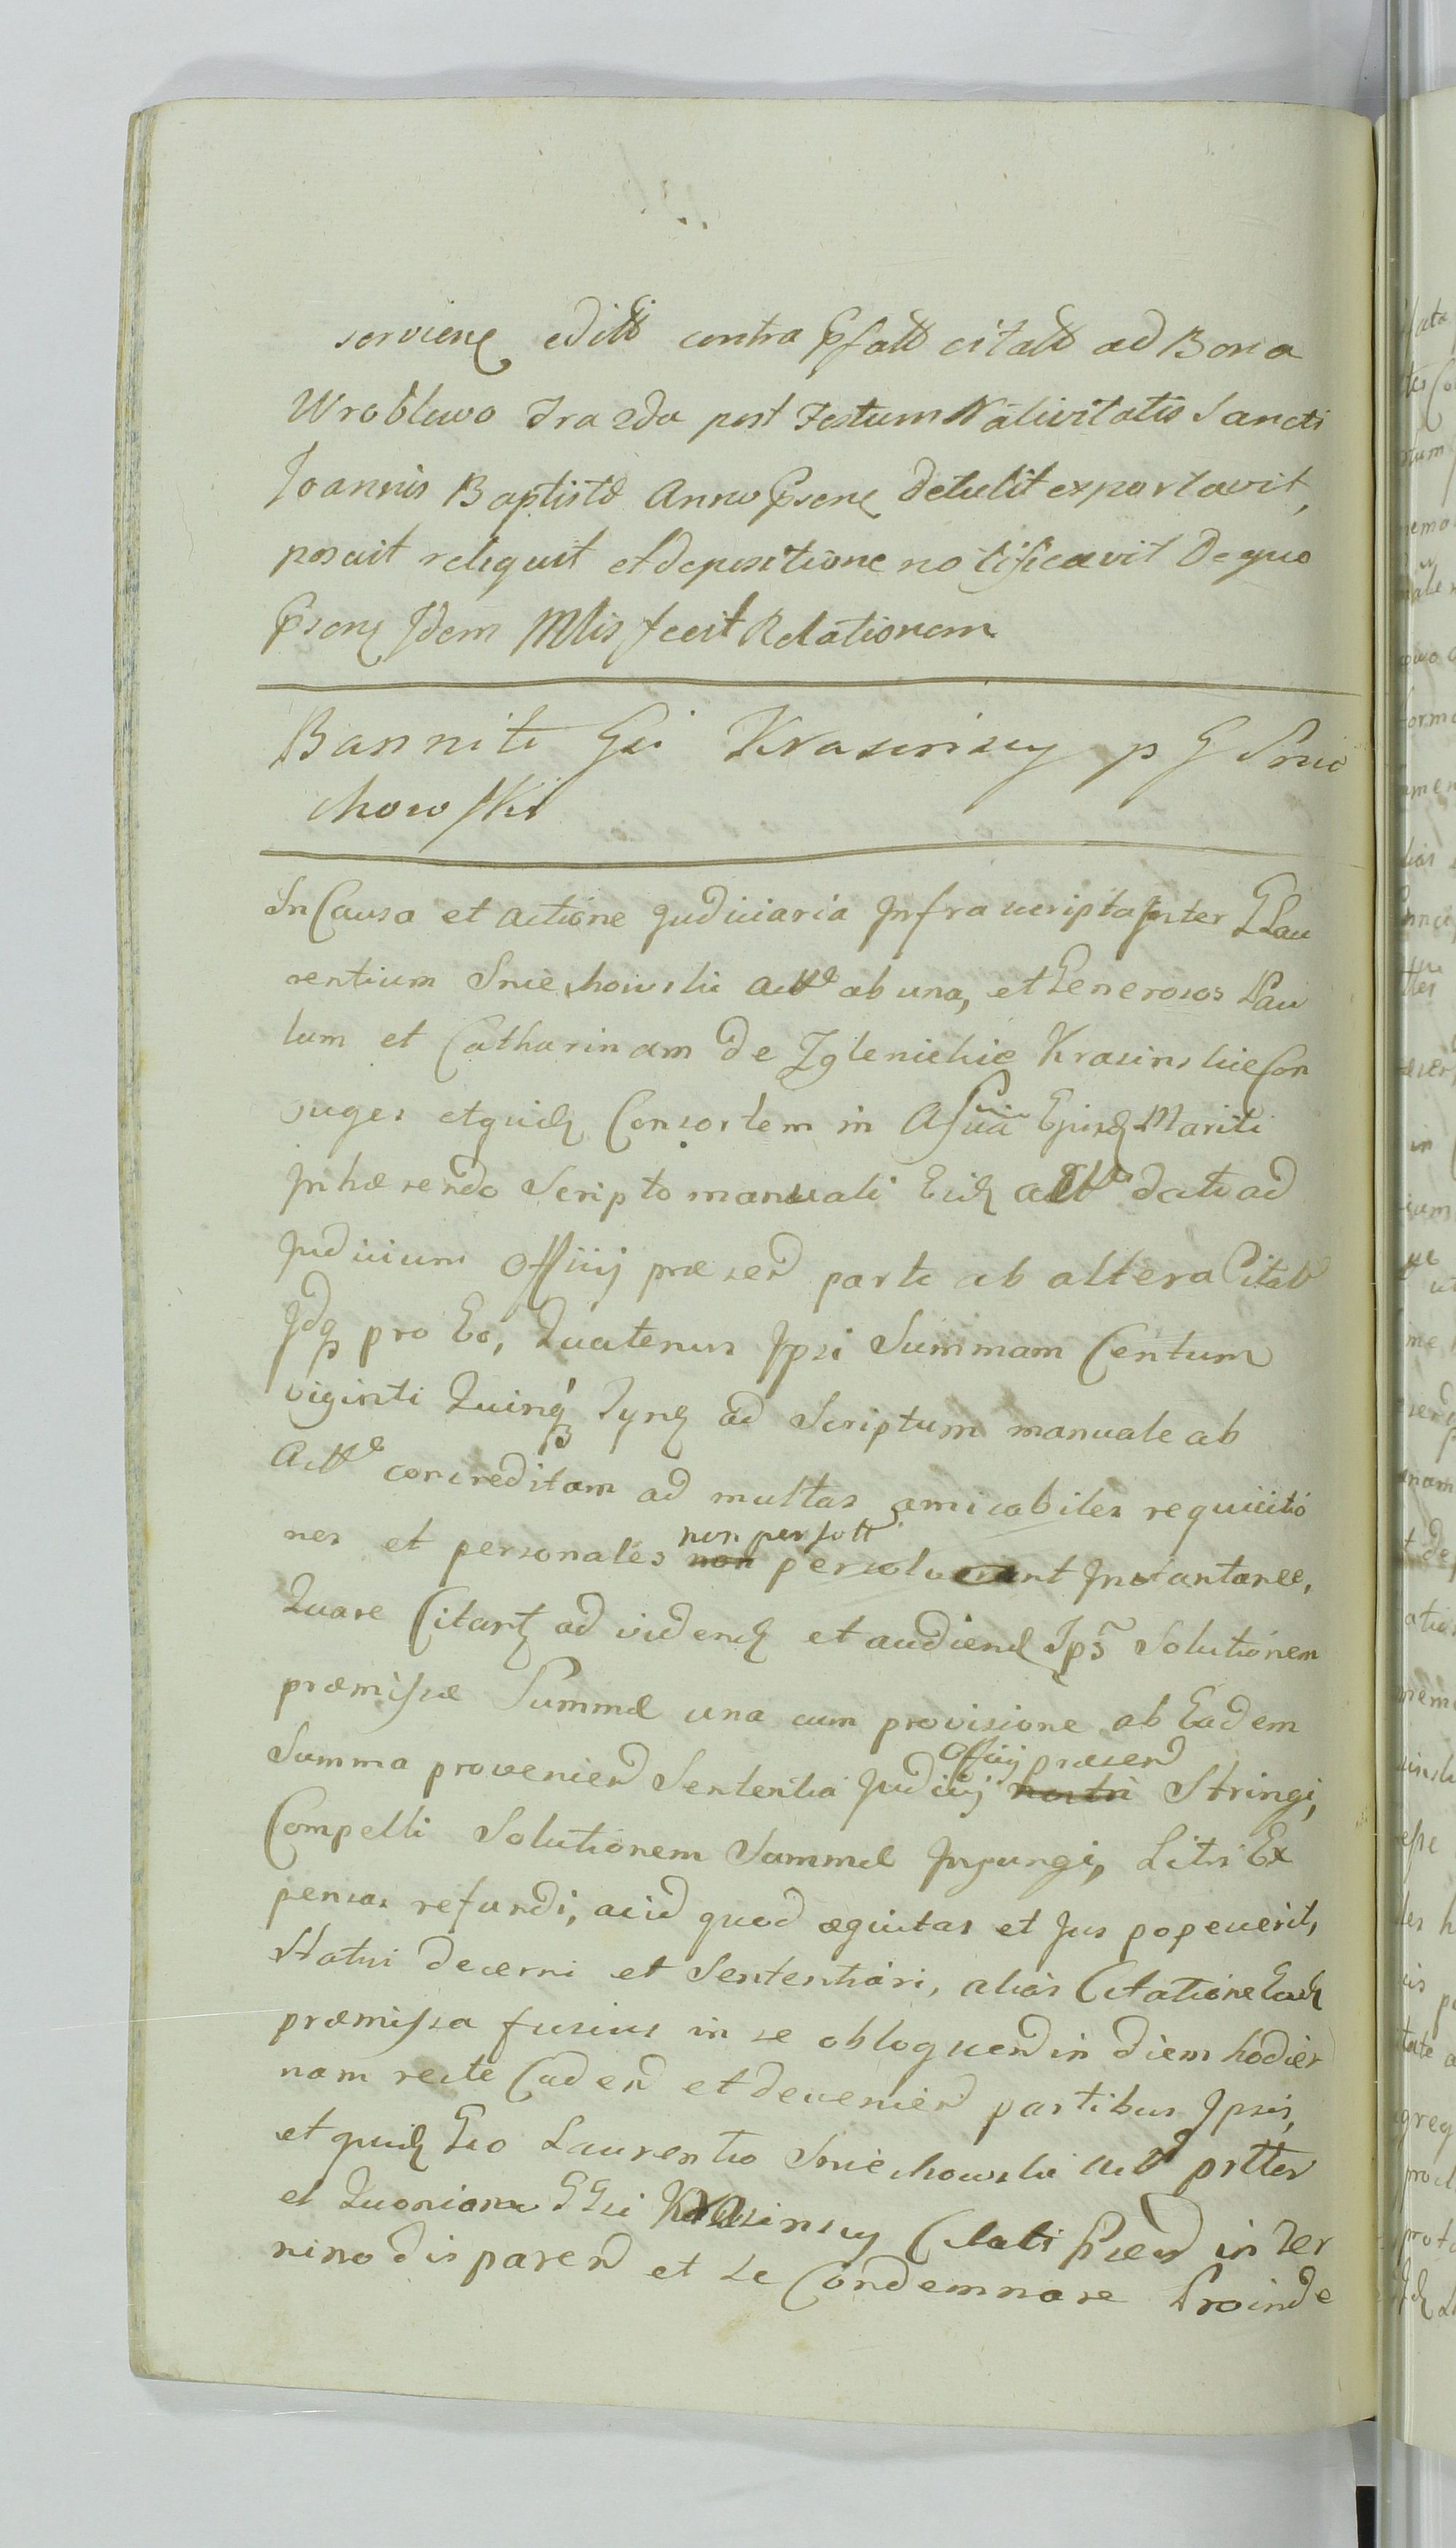 servien edittt contra Pfatt citatt ad Bona
Wroblewo Fra 2da post Festum Nativitatis Sancti
Joannis Baptistæ Anno Psen detulit exportavit,
posuit reliquit et depositione notificavit De quo
Psen Idem Mlis fecit Relationem
Banniti Gsi Krasinscy p G Snie
chowski
In Causa et actione Judiciaria Infrascripta Inter G Lau
rentium Sniechowski Actt ab una, et Generosos Pau
lum et Catharinam de Zglenickie Krasinskie Con
juges et quid Consortem in Assua Ejusd Mariti
Inhærendo Scripto manuali Eid actt dato ad
Judicium Officij præsen parte ab altera Citatt
Idq pro Eo, Quatenus Ipsi Summam Centum
viginti Quinq Tyn ad Scriptum manuale ab
Actt concreditam ad multas amicabiles requisitio
nes et personales non persott persolverunt Instantanee,
Quare Citant ad vidend et audiend Ips Solutionem
præmissæ Summæ una cum provisione ab Eadem
Summa provenien Sententia Judicij Officij præsen nostri Stringi,
Compelli Solutionem Summæ Injungi, Litis Ex
pensas refundi, aeid quod æquitas et Jus poposcerit,
Statui decerni et Sententiari, alias Citatione Ead
præmissa fusius in se obloquen in diem hodier
nam recte Caden et devenien partibus Ipsis,
et quid Gso Laurentio Sniechowski Actt prtter
et Quoniam GGsi Krasinscy Citati Psen in Ter
mino disparen et se Condemnare Proinde